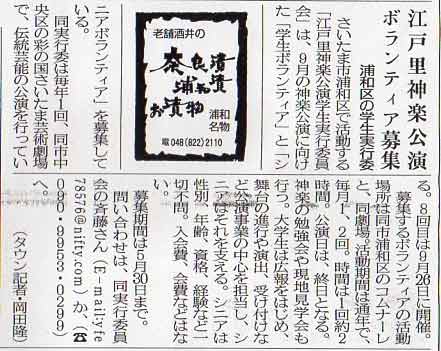 江戸里神楽公演
ボランティア募集
浦和区の学生実行委
さいたま市浦和区で活動する
「江戸里神楽公演学生実行委員
会」は、9月の神楽公演に向け
た「学生ボランティア」と「シ
ニアボランティア」を募集して
いる。
同実行委は毎年1回、同市中
央区の彩の国さいたま芸術劇場
で、伝統芸能の公演を行ってい
る。8回目は9月26日に開催。
募集するボランティアの活動
場所は同市浦和区のコムナーレ
と、同劇場。活動期間は通年で、
毎月1、2回。時間は1回約2
時間。公演日は、終日となる。
神楽の勉強会や現地見学会も
行う。大学生は広報をはじめ、
舞台の進行や演出、受け付けな
ど公演事業の中心を担当し、シ
ニアはそれを支える。シニアは
性別、年齢、資格、経験など一
切不問。入会費、会費などはな
い。
募集期間は5月30日まで。
問い合わせは、同実行委員
会の斉藤さん(E-mail:yfe
78576@nifty.com)か、(☎
090・9953・0299)
へ。
(タウン記者・岡田隆)
老舗酒井の
奈良漬
浦和漬
お漬物
浦和
名物
電048(822)2110